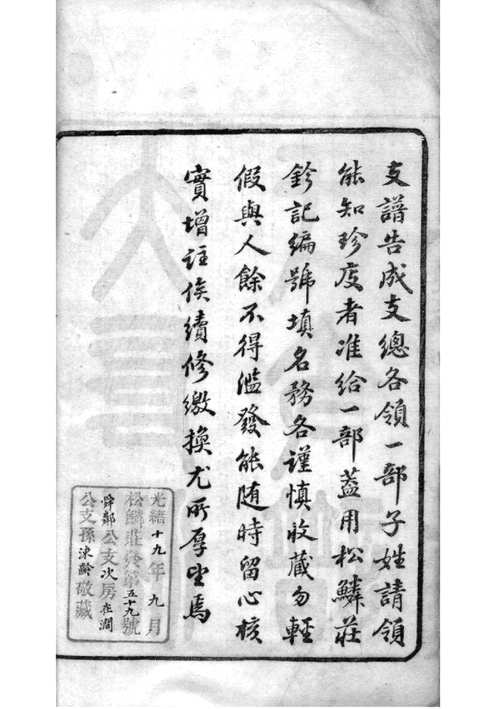 支譜告成支總各領一部子姓請領
能知珍度者准給一部蓋用松鱗莊
鈐記編號填名務各謹慎收蔵勿輕
假與人餘不得濫發能随時留心核
實增註俟續修繳換尤所厚望焉
光緒十九年九月
松鱗莊發第五十九號
舜鄰公支次房在澗
公支孫涑齡敬藏